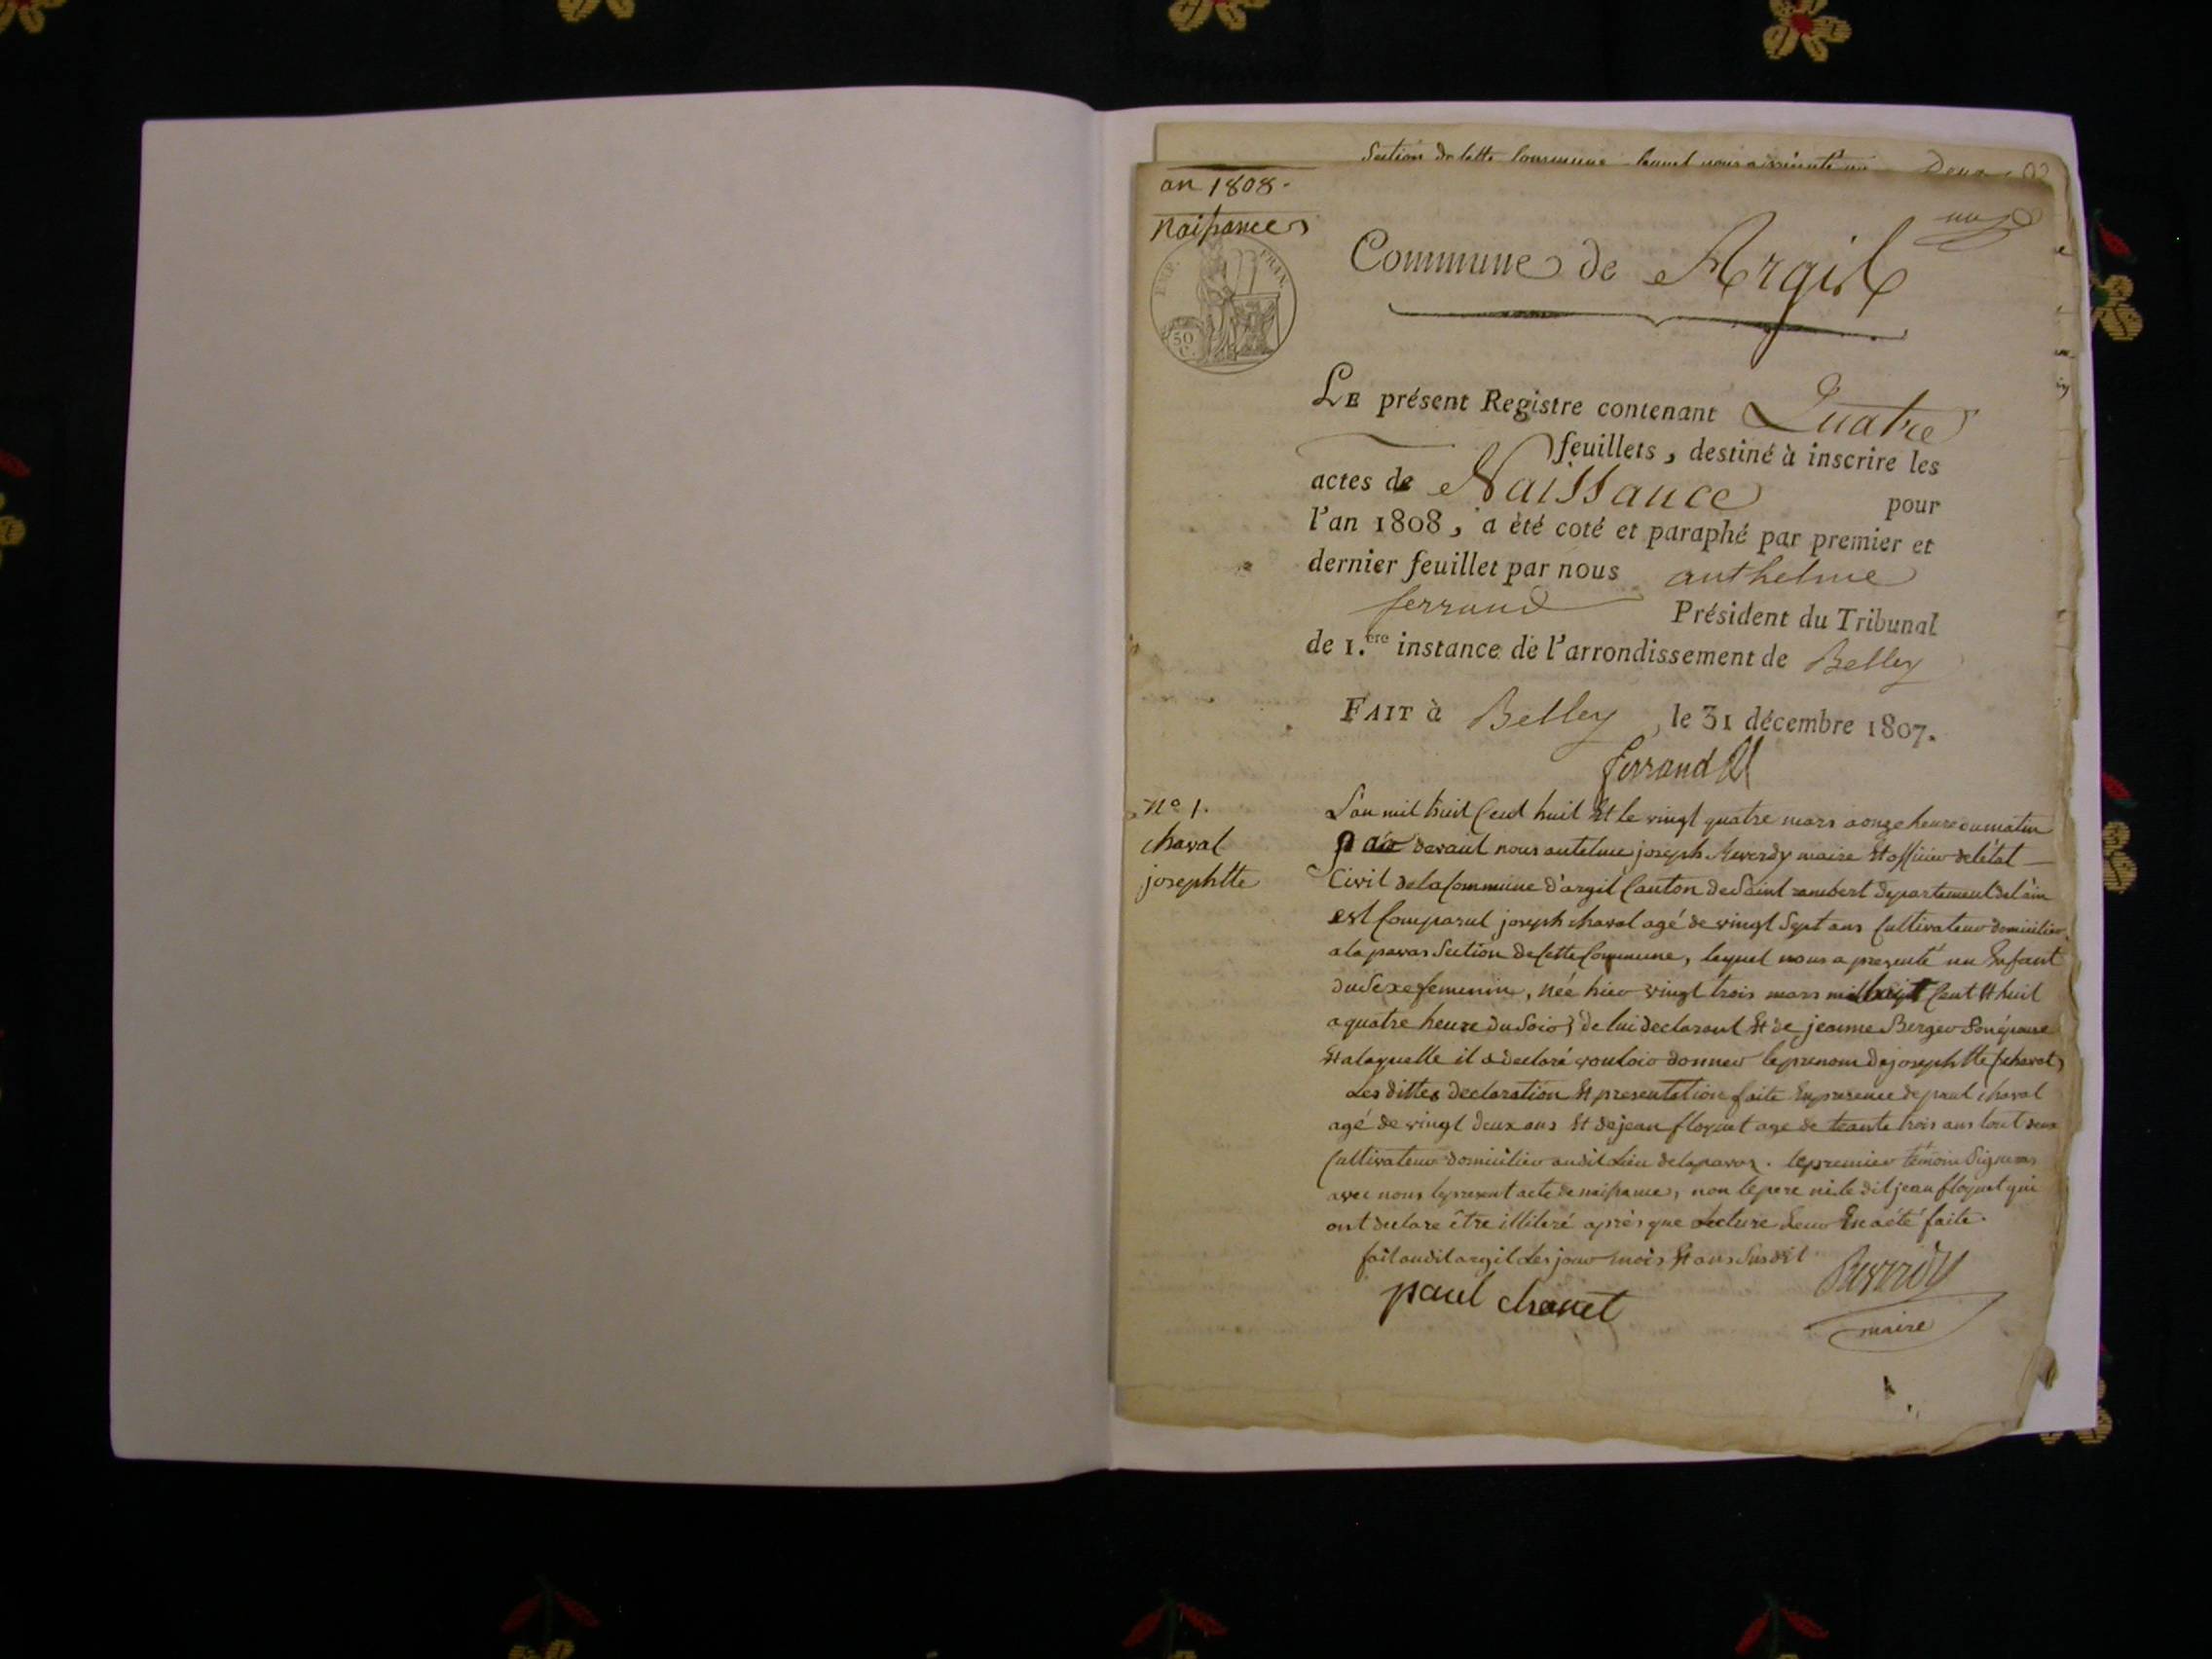 Section de cette Commune lequel nous a présenté un
an 1808.
Naissances
un
EMP. FRAN.
50 C.
Commune de Argil
LE présent Registre contenant Quatre
feuillets, destiné à inscrire les
actes de Naissance pour
l'an 1808, a été coté et paraphé par premier et
dernier feuillet par nous anthelme
ferrand Président du Tribunal
de 1.ere instance de l'arrondissement de Belley
FAIT à Belley, le 31 décembre 1807.
ferrand
No 1.
chaval
josephtte
L'an mil huit Cent huit Et le vingt quatre mars a onze heure du matin
par devant nous antelme joseph Reverdy maire Et officier de l'état
Civil de la Commune d'argil Canton de Saint rambert departement de l'ain
est Comparut joseph chaval agé de vingt Sept ans Cultivateur domicilier
a la pavas Section de Cette Commune, lequel nous a presenté un Enfant
du Sexe femenin, née hier vingt trois mars mil huit Cent Et huit
a quatre heure du Soir, de lui declarant Et de jeanne Berger Son épouse
Et a laquelle il a declaré vouloir donner le prenom de josephtte (chaval)
Les dittes declaration Et presentation faite En presence de paul chaval
agé de vingt deux ans Et de jean floquet age de trante trois ans tout deux
Cultivateur domicilier au dit Lieu de la pavas. le premier témoin Signeras
avec nous le present acte de naissance, non le pere ni le dit jean floquet qui
ont declare être illiteré après que Lecture Leur En a été faite.
fait au dit argil Les jour mois Et ans Susdit
paul chavet
Reverdy
maire